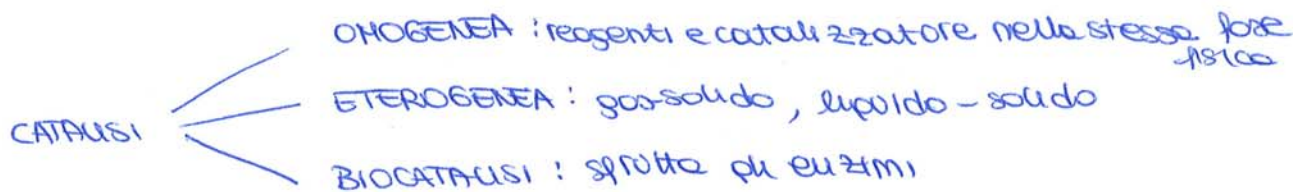 OMOGENEA : reagenti e catalizzatore nella stessa fase
fisica
ETEROGENEA : gas-solido, liquido - solido
CATALISI
BIOCATALISI : sfrutta gli enzimi